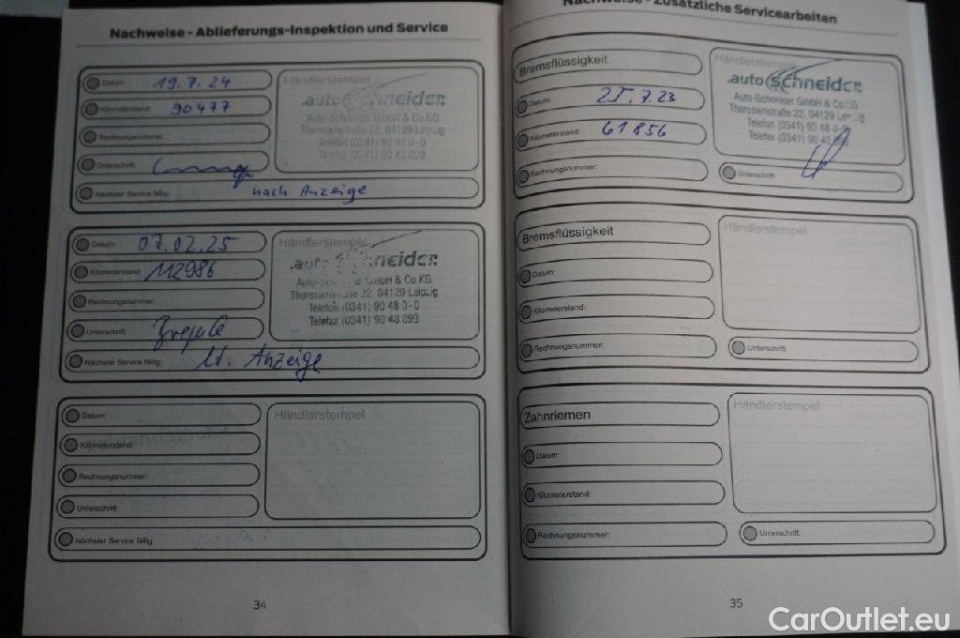 Nachweise - Ablieferungs-Inspektion und Service
Datum: 19.7.24
Kilometerstand: 90477
Rechnungsnummer:
Unterschrift:
Nächster Service fällig: nach Anzeige
Händlerstempel
auto Schneider
Auto-Schneider GmbH & Co.KG
Theresienstraße 22, 04129 Leipzig
Telefon (0341) 90 48 0-0
Telefax (0341) 90 48 099
Datum: 07.02.25
Kilometerstand: 112986
Rechnungsnummer:
Unterschrift:
Nächster Service fällig: lt. Anzeige
Händlerstempel
auto Schneider
Auto-Schneider GmbH & Co.KG
Theresienstraße 22, 04129 Leipzig
Telefon (0341) 90 48 0-0
Telefax (0341) 90 48 099
Datum:
Kilometerstand:
Rechnungsnummer:
Unterschrift:
Nächster Service fällig
Händlerstempel
34
Nachweise - Zusätzliche Servicearbeiten
Bremsflüssigkeit
Datum: 25.7.23
Kilometerstand: 61856
Rechnungsnummer:
Händlerstempel
auto schneider
Auto-Schneider GmbH & Co.KG
Theresienstraße 22, 04129 Leipzig
Telefon (0341) 90 48 0-0
Telefax (0341) 90 48
Unterschrift:
Bremsflüssigkeit
Datum:
Kilometerstand:
Rechnungsnummer:
Händlerstempel
Unterschrift:
Zahnriemen
Datum:
Kilometerstand:
Rechnungsnummer:
Händlerstempel
Unterschrift:
35
CarOutlet.eu